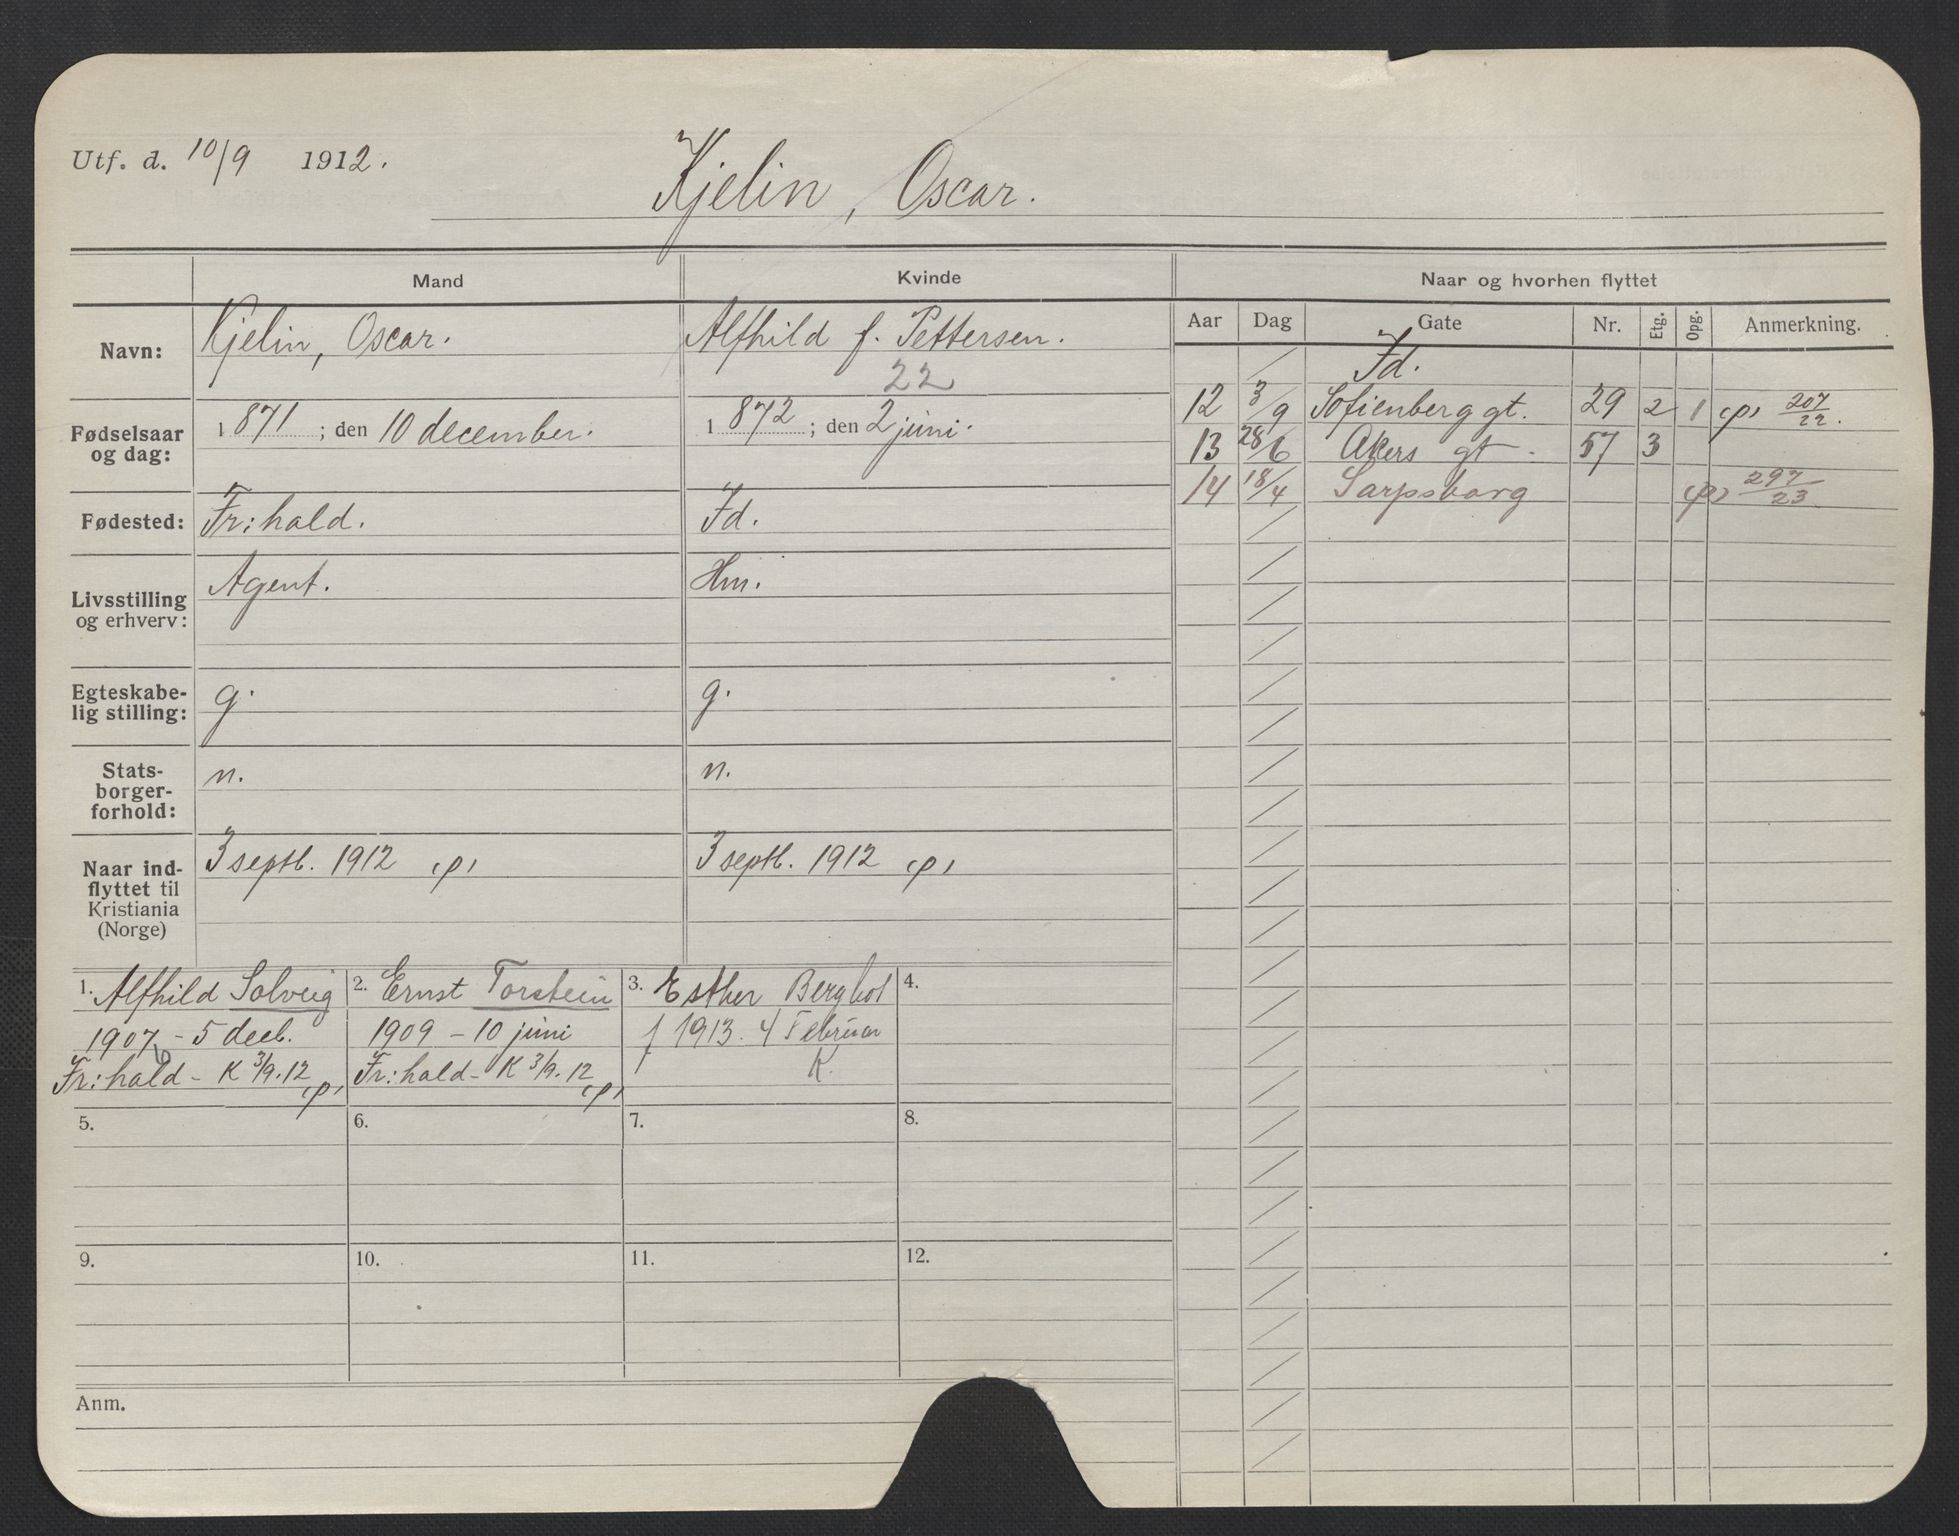 Utf. d. 10/9 1912.
Kjelin, Oscar.
Mand
Kvinde
Naar og hvorhen flyttet
Aar Dag Gate Nr. Etg. Opg. Anmerkning.
Navn: Kjelin, Oscar. Alfhild f. Pettersen.
22
Fødselsaar og dag: 1871; den 10 december. 1872; den 2 juni.
Fødested: Fr:hald. Id.
Livsstilling og erhverv: Agent. Hm.
Egteskabe-
lig stilling: g. g.
Stats-
borger-
forhold: n. n.
Naar ind-
flyttet til
Kristiania
(Norge) 3 septb. 1912 (p) 3 septb. 1912 (p)
Id.
12 3/9 Sofienberggt. 29 2 1 (p) 207/22.
13 28/6 Akers gt. 57 3
14 18/4 Sarpsborg (p) 297/23
1. Alfhild Solveig
1907 - 5 decb.
Fr:hald - K 3/9.12 (p)
2. Ernst Torstein
1909 - 10 juni
Fr:hald - K 3/9.12 (p)
3. Esther Bergliot
f 1913. 4 Februar
K.
4.
5.
6.
7.
8.
9.
10.
11.
12.
Anm.